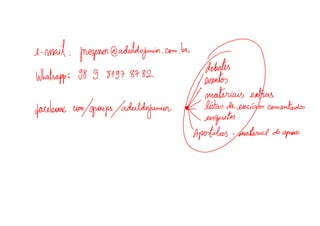 e-mail: professor@adeildojunior.com.br
Whatsapp: 98 9 8197 8782
facebook.com/groups/adeildojunior
debates
eventos
materiais extras
listas de exercícios comentados
enquetes
Apostilas - material de apoio